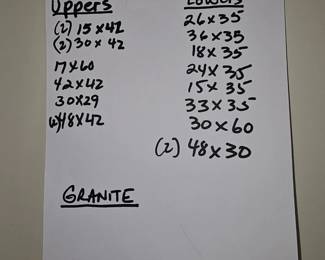 Uppers
(2) 15 x 42
(2) 30 x 42
17 x 60
42 x 42
30 x 29
48 x 42
Lowers
26 x 35
36 x 35
18 x 35
24 x 35
15 x 35
33 x 35
30 x 60
(2) 48 x 30
GRANITE